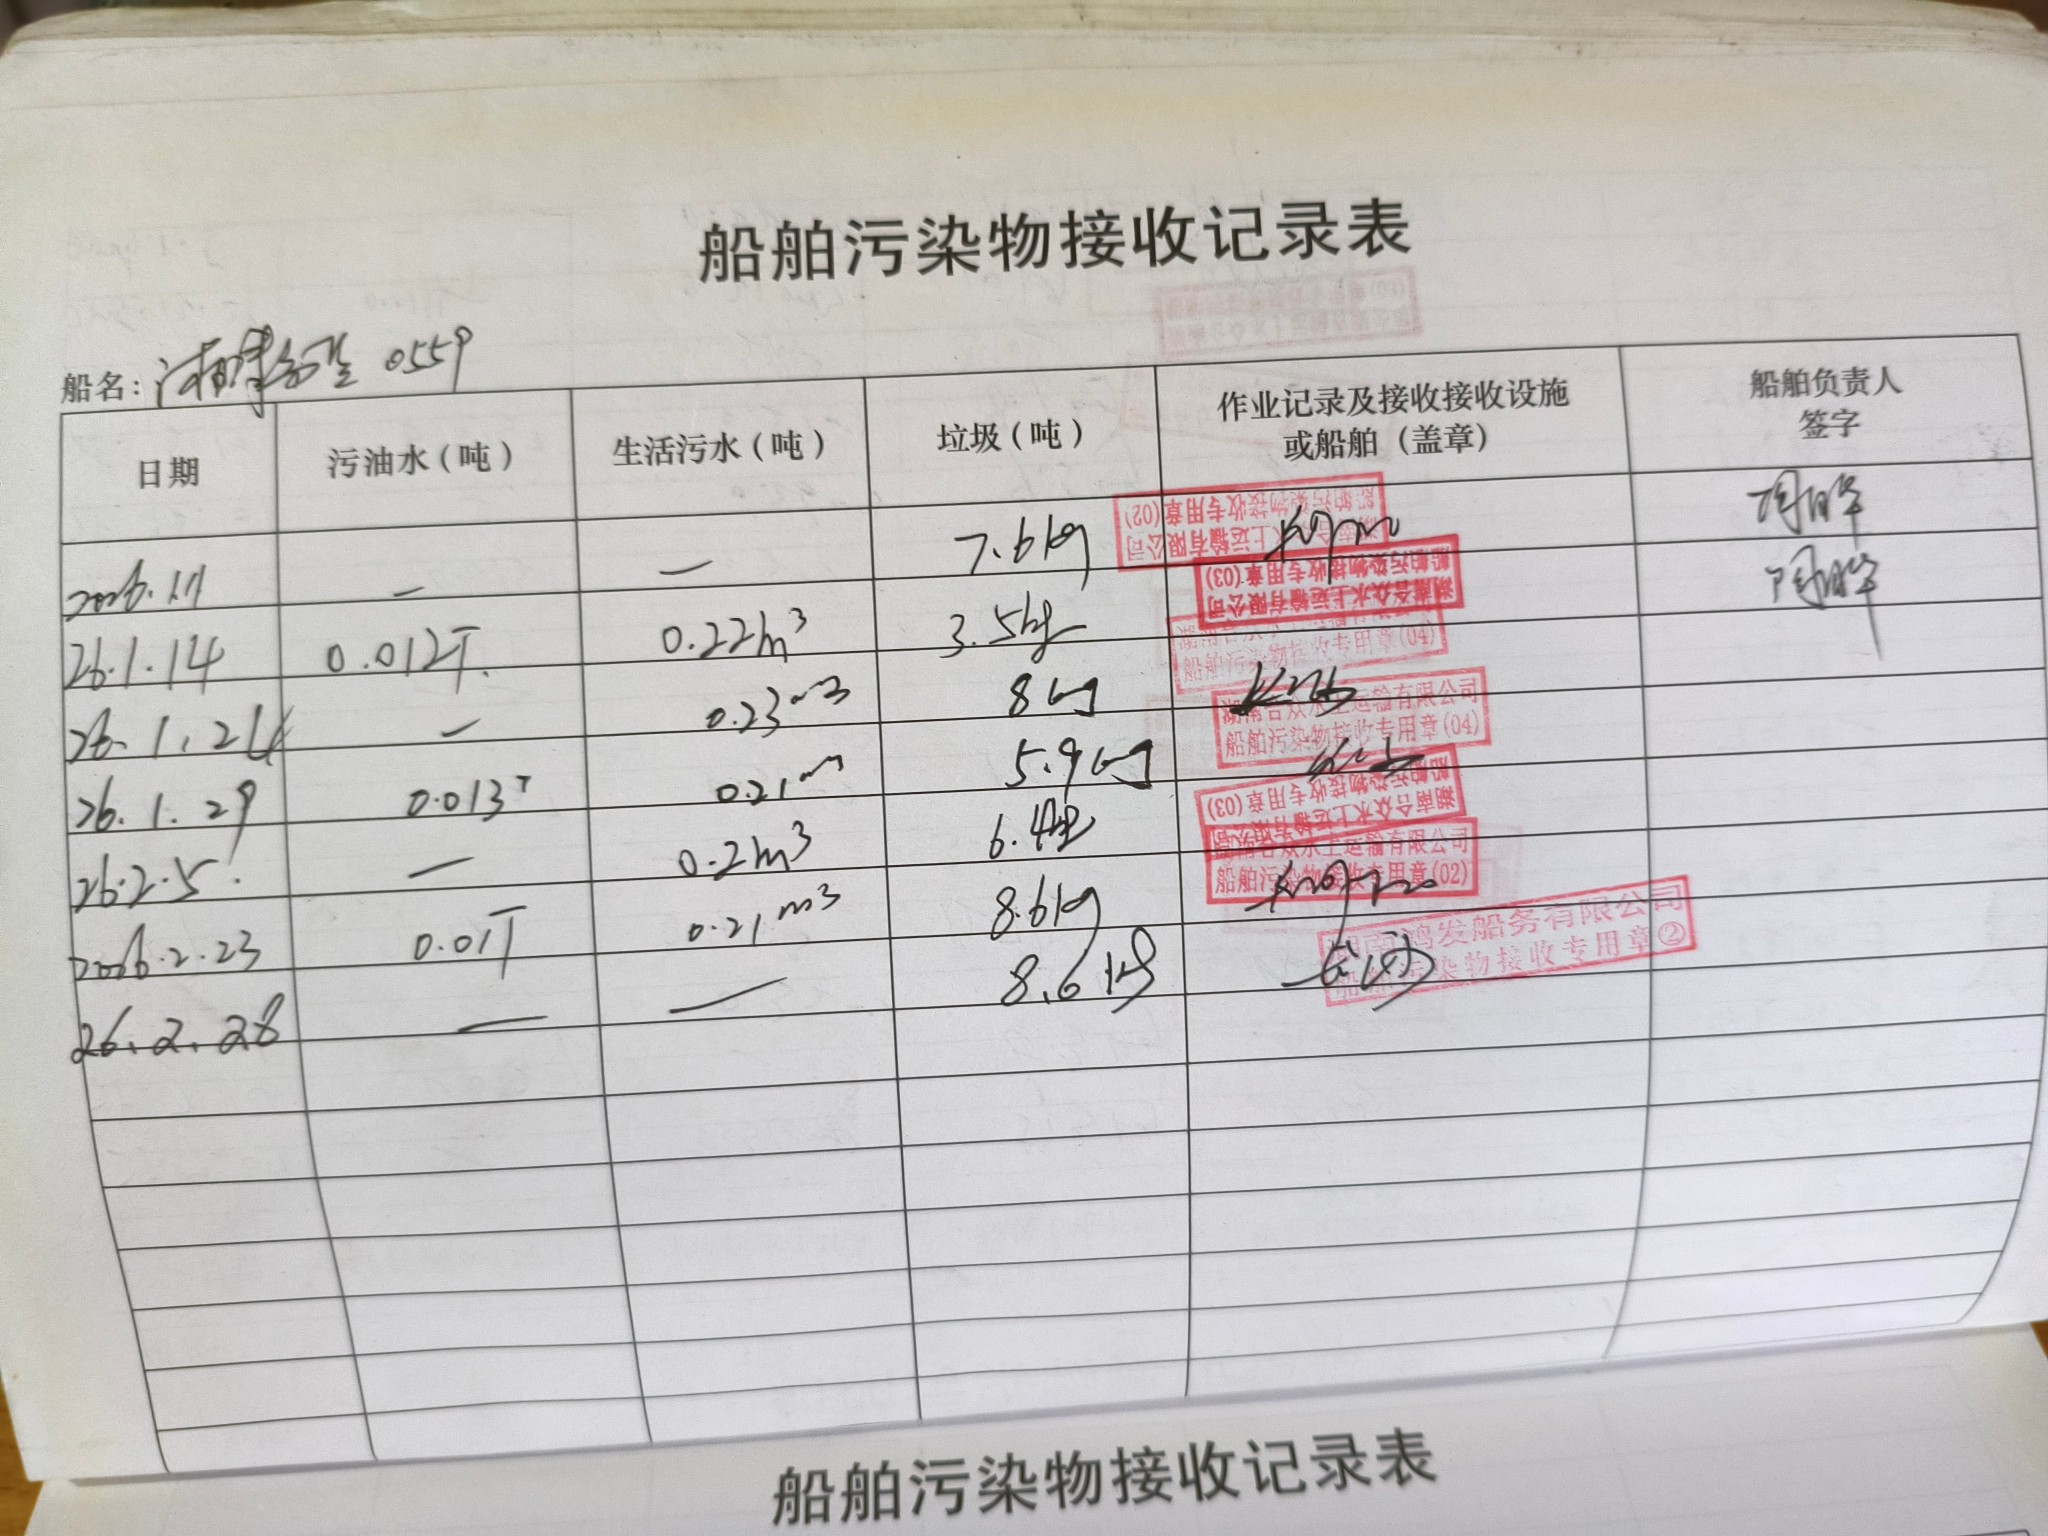 船舶污染物接收记录表
船名: 0559
日期 污油水(吨) 生活污水(吨) 垃圾(吨) 作业记录及接收接收设施或船舶(盖章) 船舶负责人签字
2026.1.11 — — 7.6kg
船舶污染物接收专用章(02)
26.1.14 0.012T. 0.22m³ 3.5kg
湖南合众水上运输有限公司
船舶污染物接收专用章(03)
船舶污染物接收专用章(04)
26.1.24 — 0.23m3 8kg
湖南合众水上运输有限公司
船舶污染物接收专用章(04)
26.1.29 0.013T 0.21m3 5.9kg
湖南合众水上运输有限公司
船舶污染物接收专用章(03)
26.2.5. — 0.21m3 6.4kg
湖南合众水上运输有限公司
船舶污染物接收专用章(02)
2026.2.23 0.01T 0.21m3 8.6kg
湖南鸿发船务有限公司
船舶污染物接收专用章②
26.2.28 — — 8.6kg
船舶污染物接收记录表